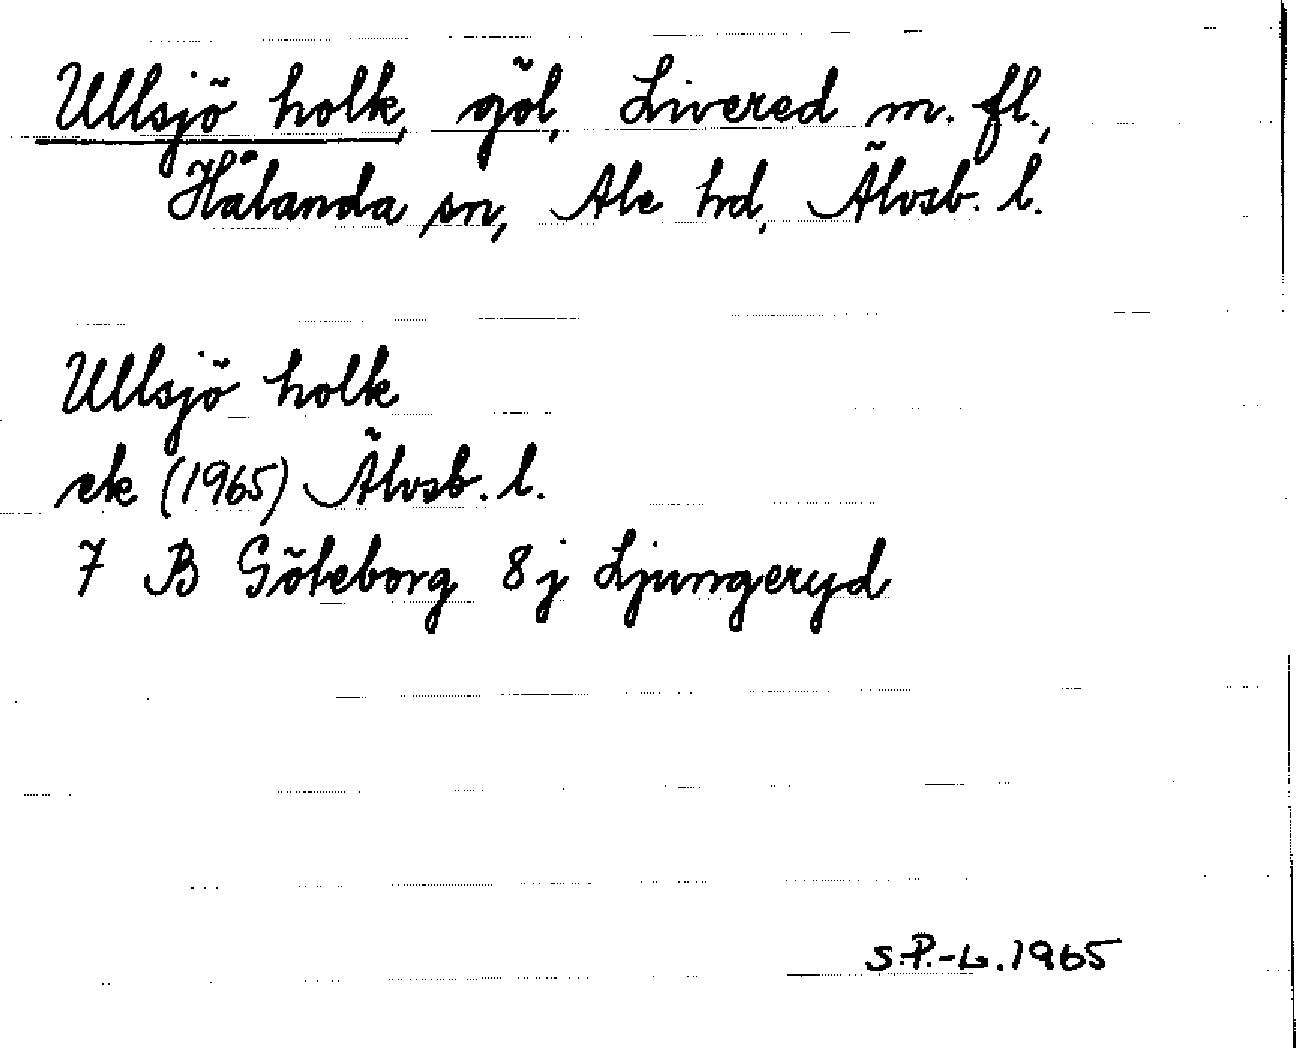 Ullsjö holk, göl, Livered m. fl.,
Hålanda sn, Ale hd, Älvsb. l.
Ullsjö holk
ek (1965) Älvsb. l.
7 B Göteborg 8j Ljungeryd
S.P.-L. 1965